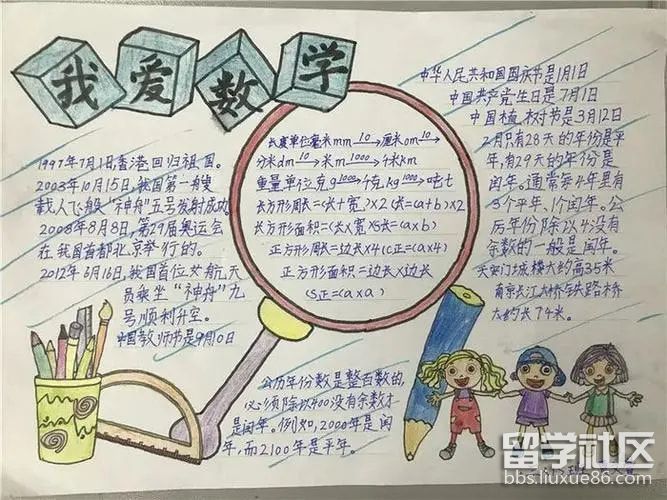 我爱数学
1997年7月1日香港回归祖国。
2003年10月15日,我国第一艘
载人飞船"神舟"五号发射成功。
2008年8月8日,第29届奥运会
在我国首都北京举行的。
2012年6月16日,我国首位女航天
员乘坐"神舟"九
号顺利升空。
中国教师节是9月10日
长度单位毫米mm 10→ 厘米cm 10→
分米dm 10→ 米m 1000→ 千米km
重量单位克g 1000→ 千克kg 1000→ 吨t
长方形周长=(长+宽)×2 C长=(a+b)×2
长方形面积=(长×宽)S长=(a×b)
正方形周长=边长×4(C正=(a×4)
正方形面积=边长×边长
(S正=(a×a)
公历年份数是整百数的,
必须除以400没有余数才
是闰年。例如,2000年是闰
年,而2100年是平年。
中华人民共和国国庆节是1月1日
中国共产党生日是7月1日
中国植树节是3月12日
2月只有28天的年份是平
年,有29天的年份是
闰年。通常每4年里有
3个平年、1个闰年。公
历年份除以4没有
余数的一般是闰年。
天安门城楼大约高35米
南京长江大桥铁路桥
大约长7千米。
留学社区
bbs.liuxue86.com